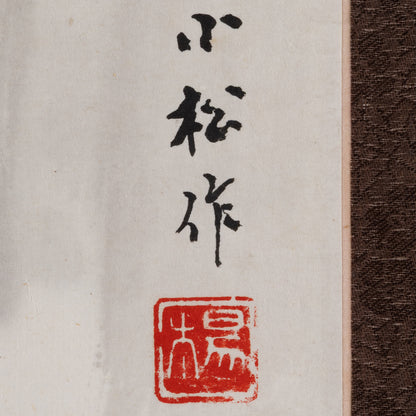 小松作